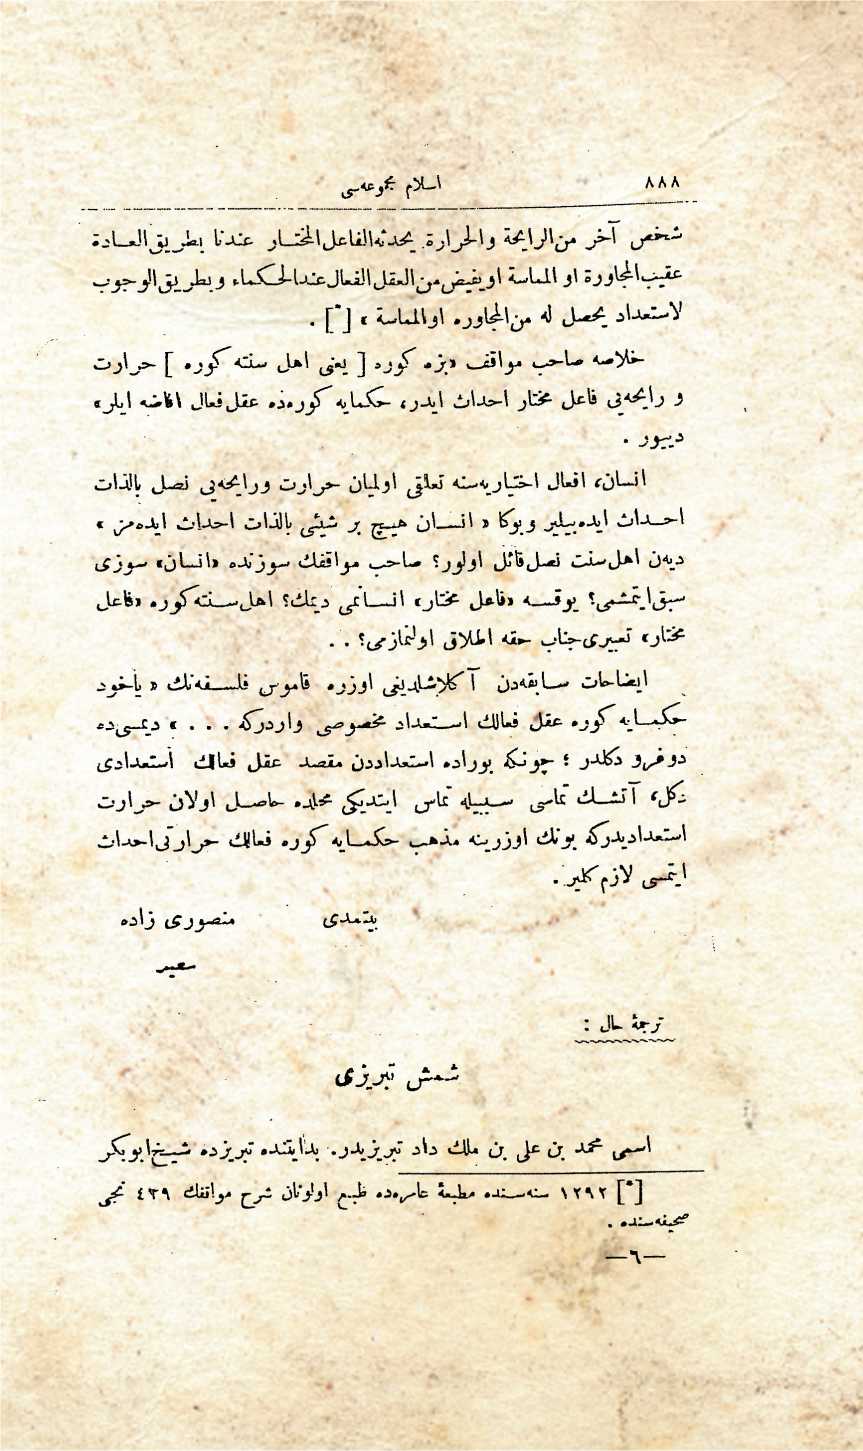 ٨٨٨ اسلام مجموعه‌سی
شخص آخر من الرایحة والحرارة یحدثه الفاعل المختار عندنا بطریق العادة
عقیب المجاورة او المماسة او یفیض من العقل الفعال عند الحکماء وبطریق الوجوب
لاستعداد یحصل له من المجاوره او المماسة » [*] .
خلاصه صاحب مواقف «بزه کوره [ یعنی اهل سنته کوره ] حرارت
و رایحه‌یی فاعل مختار احداث ایدر، حکمایه کوره‌ده عقل فعال افاضه ایلر»
دییور .
انسان، افعال اختیاریه‌سنه تعلقی اولمیان حرارت ورایحه‌یی نصل بالذات
احداث ایده‌بیلیر وبوکا « انسان هیچ بر شیئی بالذات احداث ایده‌مز »
دیه‌ن اهل سنت نصل قائل اولور؟ صاحب مواقفك سوزنده «انسان» سوزی
سبق ایتمشمی؟ یوقسه «فاعل مختار» انسانمی دیمك؟ اهل سنته کوره «فاعل
مختار» تعبیری جناب حقه اطلاق اولنمازمی؟ . .
ایضاحات سابقه‌دن آکلاشلدیغی اوزره قاموس فلسفه‌نك « یاخود
حکمایه کوره عقل فعالك استعداد مخصوصی واردرکه . . . » دیمسی‌ده
دوغرو دکلدر ؛ چونکه بوراده استعداددن مقصد عقل فعالك استعدادی
دکل، آتشك تماسی سببیله تماس ایتدیکی محلده حاصل اولان حرارت
استعدادیدرکه بونك اوزرینه مذهب حکمایه کوره فعالك حرارتی احداث
ایتمسی لازم کلیر .
بیتمدی منصوری زاده
سعید
ترجمۀ حال :
شمش تبریزی
اسمی محمد بن علی بن ملك داد تبریزیدر. بدایتنده تبریزده شیخ ابوبکر
[*] ١٢٩٢ سنه‌سنده مطبعۀ عامره‌ده طبع اولونان شرح مواقفك ٤٣٩ نجی
صحیفه‌سنده .
—٦—